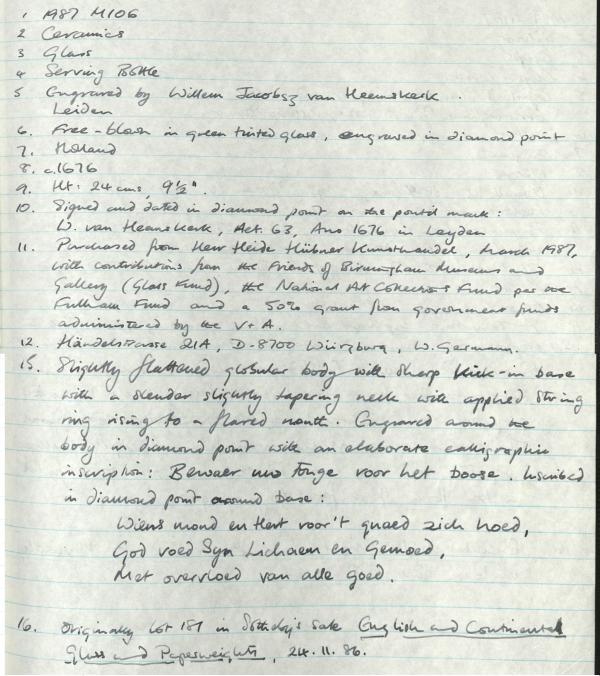 1 1987 M106
2 Ceramics
3 Glass
4 Serving Bottle
5 Engraved by Willem Jacobsz van Heemskerk.
Leiden
6. Free-blown in green tinted glass, engraved in diamond point
7. Holland
8. c.1676
9. Ht: 24 cms 9½".
10. Signed and dated in diamond point on the pontil mark:
W. van Heemskerk, Aet. 63, Ano 1676 in Leyden
11. Purchased from Herr Heide Hübner Kunsthandel, March 1987,
with contributions from the Friends of Birmingham Museums and
Gallery (Glass Fund), the National Art Collections Fund per the
Fulham Fund and a 50% grant from government funds
administered by the V+A.
12. Händelstrasse 21A, D-8700 Würzburg, W. Germany.
15. Slightly flattened globular body with sharp kick-in base
with a slender slightly tapering neck with applied string
ring rising to a flared mouth. Engraved around the
body in diamond point with an elaborate calligraphic
inscription: Bewaer uw Tonge voor het boose. Inscribed
in diamond point around base:
Wiens mond en Hert voor't quaed zich hoed,
God voed Syn Lichaem en Gemoed,
Met overvloed van alle goed.
16. Originally Lot 187 in Sotheby's sale English and Continental
Glass and Paperweights, 24.11.86.